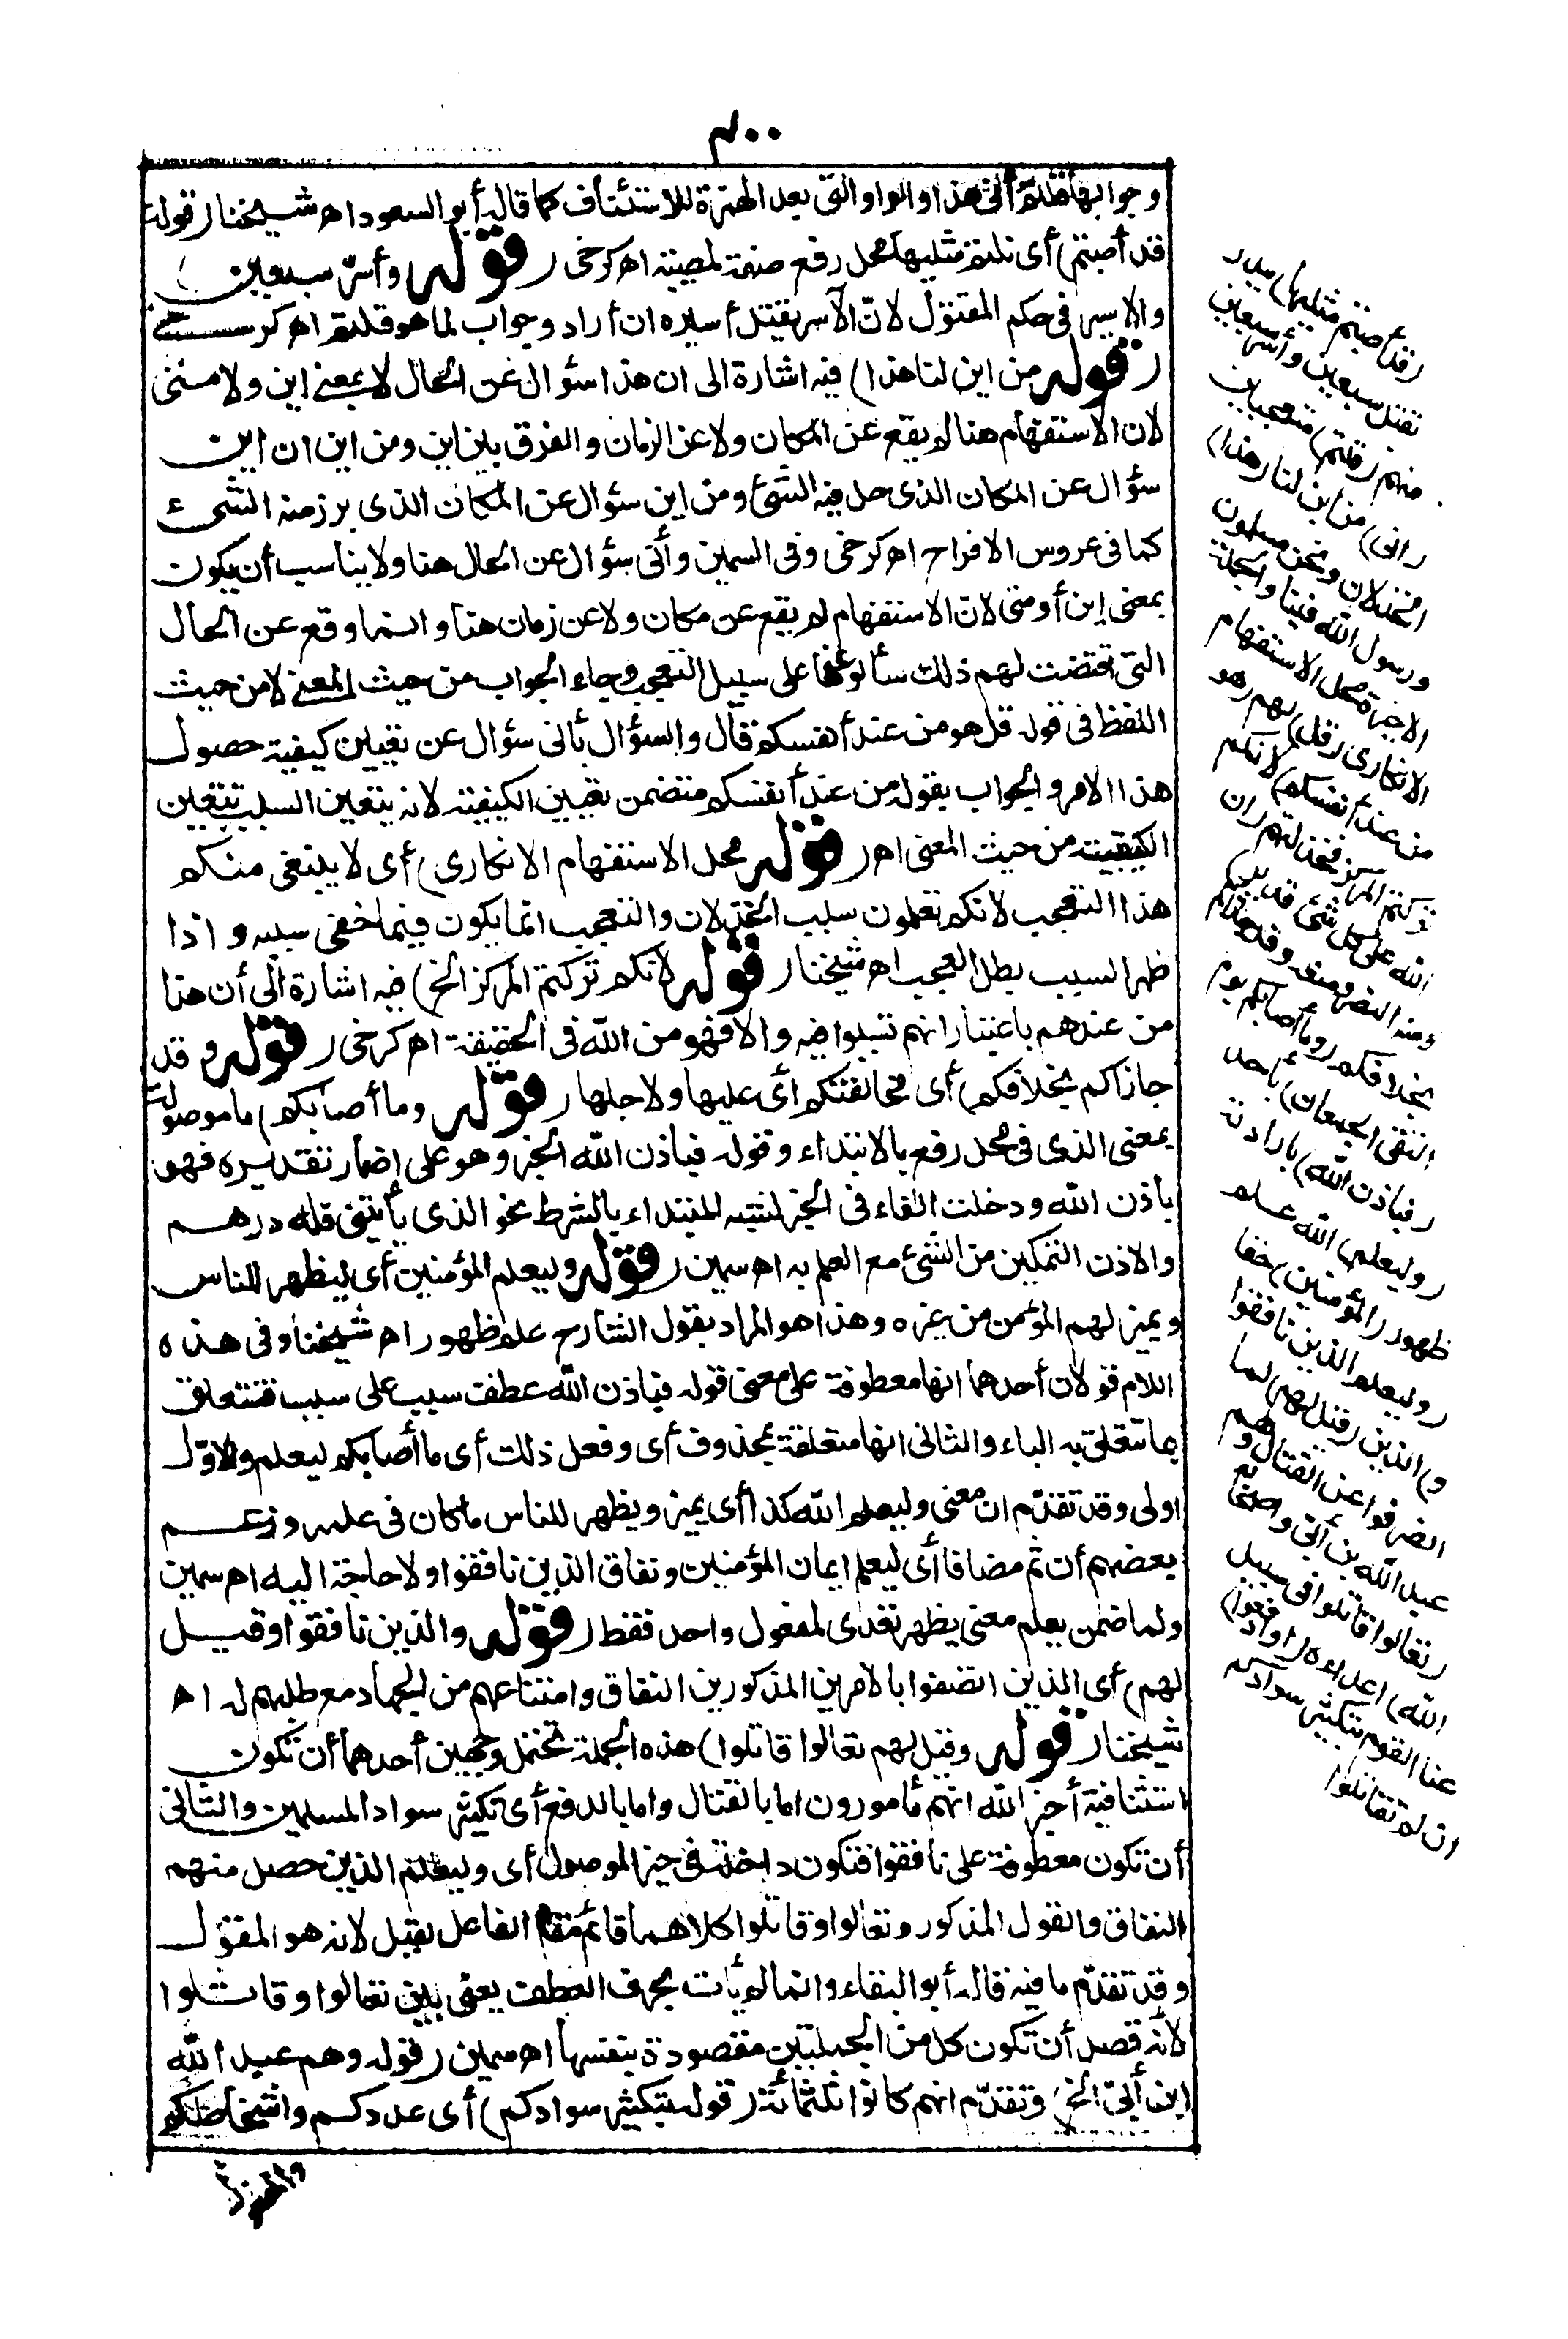 ٤٠٠
وجوابها قلتم أنى هذا والواو التى بعد الهمزة للاستئناف كما قاله أبو السعود اه شيخنا (قوله
قد أصبتم) أى نلتم مثليها محل رفع صفة لمصيبة اه كرخى (قوله وأسر سبعين
والاسير فى حكم المقتول لانّ الآسر يقتل أسيره ان أراد وجواب لما هو قلتم اه كرخى
(قوله من اين لنا هذا) فيه اشارة الى ان هذا سؤال عن الحال لا بمعنى اين ولا متى
لان الاستفهام هنا لم يقع عن المكان ولا عن الزمان والفرق بين اين ومن اين ان اين
سؤال عن المكان الذى حل فيه الشئ ومن اين سؤال عن المكان الذى برز منه الشئ
كما فى عروس الافراح اه كرخى وفى السمين وأنى سؤال عن الحال هنا ولا يناسب أن يكون
بمعنى اين أو متى لانّ الاستفهام لم يقع عن مكان ولا عن زمان هنا وانما وقع عن الحال
التى اقتضت لهم ذلك سألوا عنها على سبيل التعجب وجاء الجواب من حيث المعنى لا من حيث
اللفظ فى قوله قل هو من عند أنفسكم قال والسؤال بأنى سؤال عن تعيين كيفية حصول
هذا الامر والجواب بقوله من عند أنفسكم متضمن تعيين الكيفية لانه بتعين السبب تتعين
الكيفية من حيث المعنى اه (قوله محل الاستفهام الانكارى) أى لا ينبغى منكم
هذا التعجب لانكم تعلمون سبب الخذلان والتعجب انما يكون فيما خفى سببه واذا
ظهر السبب بطل العجب اه شيخنا (قوله لانكم تركتم المركز الخ) فيه اشارة الى أن هذا
من عندهم باعتبار انهم تسببوا فيه والا فهو من الله فى الحقيقة اه كرخى (قوله وقد
جازاكم بخلافكم) أى مخالفتكم أى عليها ولاجلها (قوله وما أصابكم) ما موصولة
بمعنى الذى فى محل رفع بالابتداء وقوله فباذن الله الخبر وهو على اضمار تقديره فهو
باذن الله ودخلت الفاء فى الخبر لشبه المبتداء بالشرط نحو الذى يأتينى فله درهم
والاذن التمكين من الشئ مع العلم به اه سمين (قوله وليعلم المؤمنين أى ليظهر للناس
ويميز لهم المؤمن من غيره وهذا هو المراد بقول الشارح علم ظهور اه شيخنا وفى هذه
اللام قولان أحدهما انها معطوفة على معنى قوله فباذن الله عطف سبب على سبب فتتعلق
بما تتعلق به الباء والثانى انها متعلقة بمحذوف أى وفعل ذلك أى ما أصابكم ليعلم والاوّل
اولى وقد تقدّم ان معنى وليعلم الله كذا أى يميز ويظهر للناس ما كان فى علمه وزعم
بعضهم أن ثم مضافا أى ليعلم ايمان المؤمنين ونفاق الذين نافقوا ولا حاجة اليه اه سمين
ولما ضمن يعلم معنى يظهر تعدى لمفعول واحد فقط (قوله والذين نافقوا وقيل
لهم) أى الذين اتصفوا بالامرين المذكورين النفاق وامتناعهم من الجهاد مع طلبهم له اه
شيخنا (قوله وقيل لهم تعالوا قاتلوا) هذه الجملة تحتمل وجهين أحدهما أن تكون
استئنافية أخبر الله انهم مأمورون اما بالقتال واما بالدفع أى تكثير سواد المسلمين والثانى
أن تكون معطوفة على نافقوا فتكون داخلة فى حيز الموصول أى وليعلم الذين حصل منهم
النفاق والقول المذكور وتعالوا وقاتلوا كلاهما قائم مقام الفاعل لقيل لانه هو المقول
وقد تقدّم ما فيه قاله أبو البقاء وانما لم يأت بحرف العطف يعنى بين تعالوا وقاتلوا
لانه قصد أن تكون كل من الجملتين مقصودة بنفسها اه سمين (قوله وهم عبد الله
ابن أبىّ الخ) وتقدّم انهم كانوا ثلثمائة (قوله بتكثير سوادكم) أى عددكم واشخاصكم
(قد أصبتم مثليها) ببدر
بقتل سبعين وأسر سبعين
منهم (قلتم) متعجبين
(أنى) من اين لنا (هذا)
الخذلان ونحن مسلمون
ورسول الله فينا والجملة
الاخيرة محل الاستفهام
الانكارى (قل) لهم (هو
من عند أنفسكم) لانكم
تركتم المركز فخذلتم (ان
الله على كل شئ قدير)
ومنه النصر ومنعه وقد جازاكم
بخلافكم (وما أصابكم يوم
التقى الجمعان) بأحد
(فباذن الله) بارادته
(وليعلم) الله علم
ظهور (المؤمنين) حقا
(وليعلم الذين نافقوا
و) الذين (قيل لهم) لما
انصرفوا عن القتال وهم
عبد الله بن أبىّ وأصحابه
(تعالوا قاتلوا فى سبيل
الله) اعداءه (أو ادفعوا)
عنا القوم بتكثير سوادكم
ان لم تقاتلوا